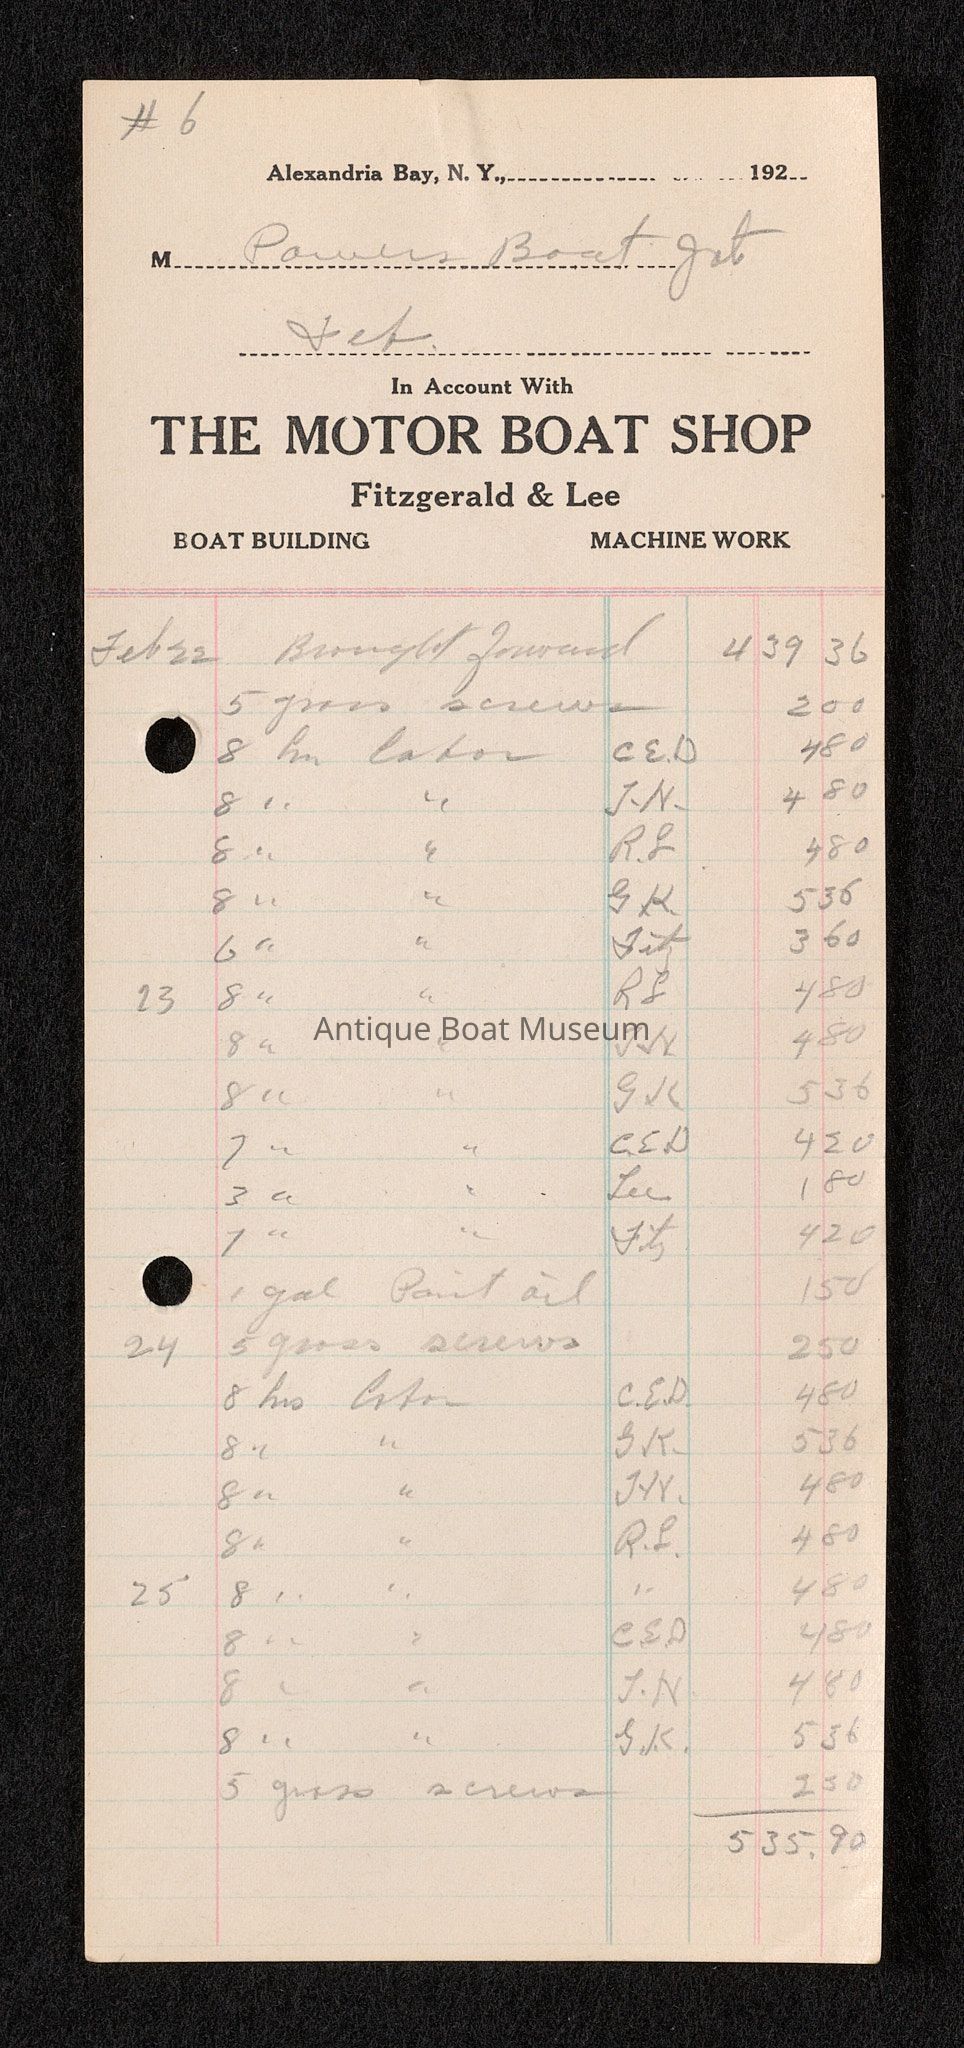 # 6
Alexandria Bay, N. Y., 192
M Powers Boat Job
Feb.
In Account With
THE MOTOR BOAT SHOP
Fitzgerald & Lee
BOAT BUILDING MACHINE WORK
Feb 22 Brought Forward 439 36
5 gross screws 2 00
8 hrs labor C.E.D 4 80
8 " " J.N. 4 80
8 " " R.L 4 80
8 " " G.K. 5 36
6 " " Fitz 3 60
23 8 " " R.L 4 80
Antique Boat Museum
8 " " J.N 4 80
8 " " G.K 5 36
7 " " C.E.D 4 20
3 " " Lee 1 80
7 " " Fitz 4 20
1 gal Paint oil 1 50
24 5 gross screws 2 50
8 hrs labor C.E.D. 4 80
8 " " G.K. 5 36
8 " " J.N. 4 80
8 " " R.L. 4 80
25 8 " " " 4 80
8 " " C.E.D 4 80
8 " " J.N. 4 80
8 " " G.K. 5 36
5 gross screws 2 50
535.90